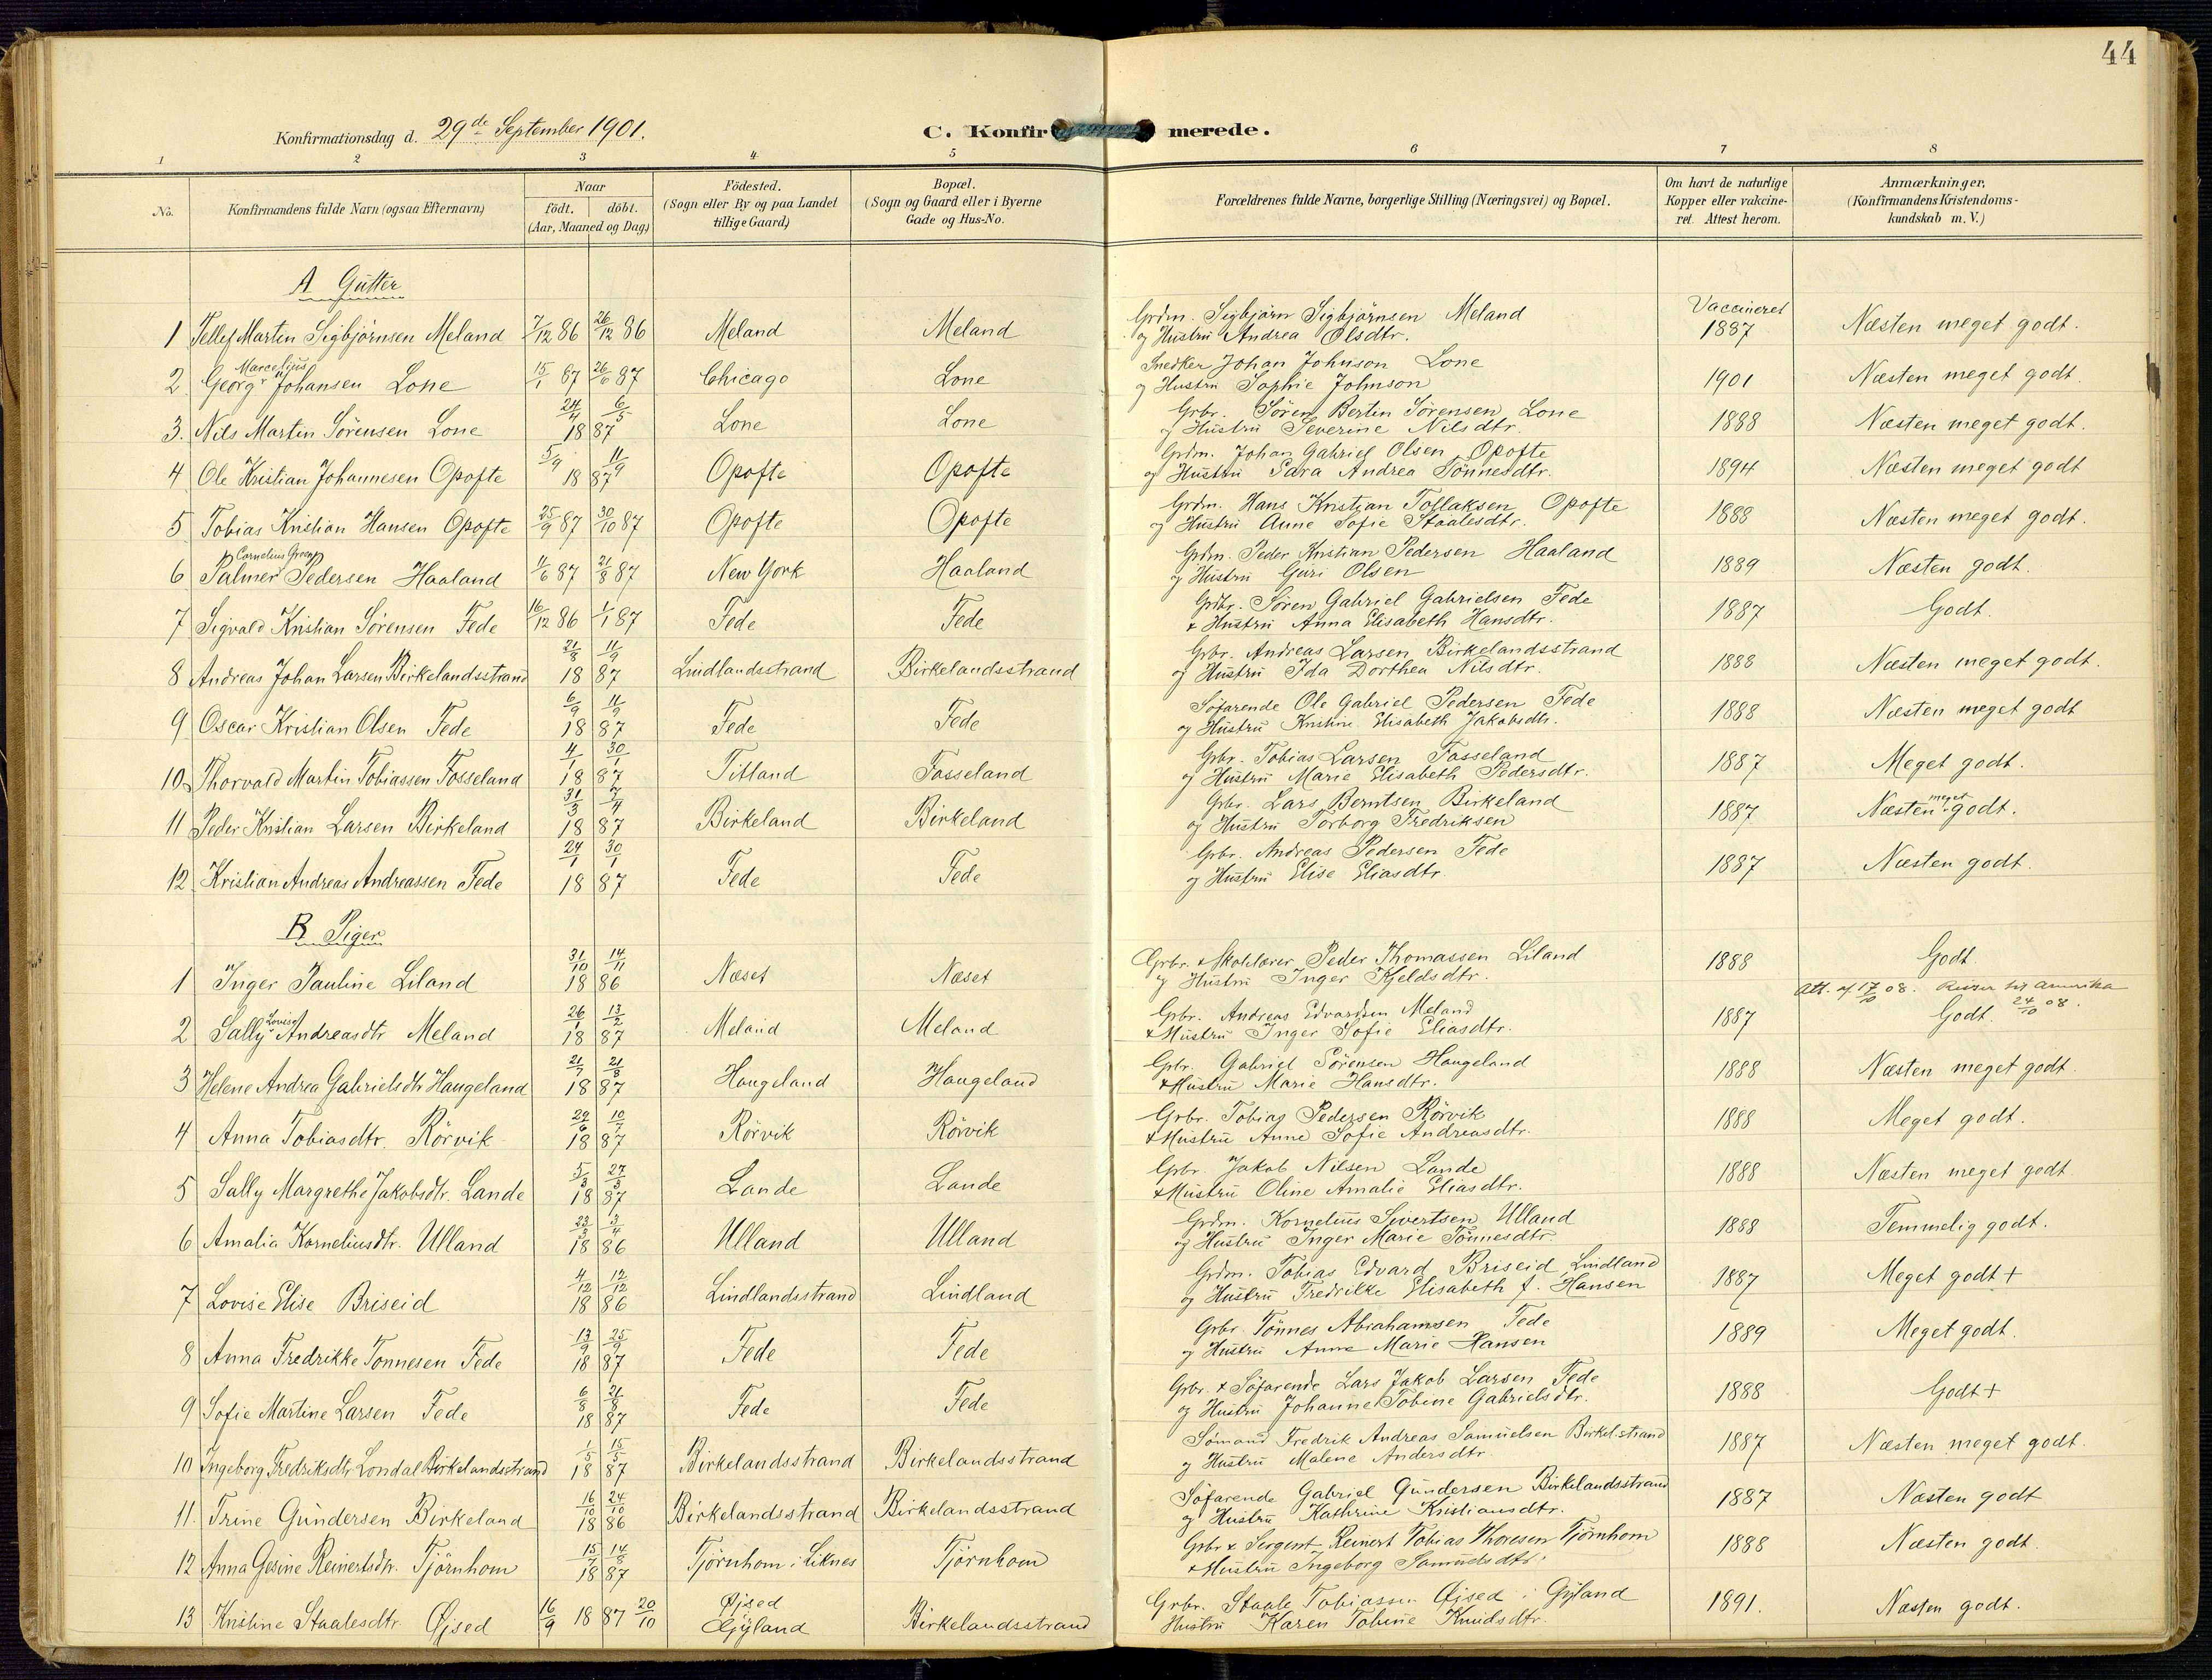 44
Konfirmationsdag d. 29de September 1901.
C. Konfir merede.
1 2 3 4 5 6 7 8
No. Konfirmandens fulde Navn (ogsaa Efternavn) Naar födt. döbt. (Aar, Maaned og Dag) Födested. (Sogn eller By og paa Landet tillige Gaard) Bopæl. (Sogn og Gaard eller i Byerne Gade og Hus-No. Forældrenes fulde Navne, borgerlige Stilling (Næringsvei) og Bopæl. Om havt de naturlige Kopper eller vakcineret. Attest herom. Anmærkninger, (Konfirmandens Kristendomskundskab m. V.)
A Gutter
1 Tellef Martin Sigbjørnsen Meland 7/12 86 26/12 86 Meland Meland Grdm. Sigbjörn Sigbjörnsen Meland og Hustru Andrea Olsdtr. Vaccineret 1887 Næsten meget godt.
2 Georg Marcelius Johansen Lone 15/1 87 26/6 87 Chicago Lone Snedker Johan Johnson Lone og Hustru Sophie Johnson 1901 Næsten meget godt.
3. Nils Martin Sörensen Lone 24/4 6/5 1887 Lone Lone Grbr. Sören Berten Sörensen Lone og Hustru Severine Nilsdtr. 1888 Næsten meget godt.
4 Ole Kristian Johannesen Opofte 5/9 11/9 1887 Opofte Opofte Grdm. Johan Gabriel Olsen Opofte og Hustru Sara Andrea Tönnesdtr. 1894 Næsten meget godt
5 Tobias Kristian Hansen Opofte 25/9 87 30/10 87 Opofte Opofte Grdm. Hans Kristian Tollaksen Opofte og Hustru Anne Sofie Staalesdtr. 1888 Næsten meget godt.
6 Palmer Cornelius Pedersen Haaland 11/6 87 21/8 87 New York Haaland Grdm. Peder Kristian Pedersen Haaland og Hustru Guri Olsen 1889 Næsten godt.
7 Sigvald Kristian Sörensen Fede 16/12 86 1/1 87 Fede Fede Grbr. Sören Gabriel Gabrielsen Fede & Hustru Anna Elisabeth Hansdtr. 1887 Godt.
8 Andreas Johan Larsen Birkelandsstrand 21/8 11/9 1887 Lindlandsstrand Birkelandsstrand Grbr. Andreas Larsen Birkelandsstrand og Hustru Ida Dorthea Nilsdtr. 1888 Næsten meget godt.
9 Oscar Kristian Olsen Fede 6/9 11/9 1887 Fede Fede Söfarende Ole Gabriel Pedersen Fede og Hustru Kristine Elisabeth Jakobsdtr. 1888 Næsten meget godt
10 Thorvald Martin Tobiassen Fosseland 4/1 30/1 1887 Titland Fosseland Grbr. Tobias Larsen Fosseland og Hustru Marie Elisabeth Pedersdtr. 1887 Meget godt.
11 Peder Kristian Larsen Birkeland 31/3 7/4 1887 Birkeland Birkeland Grbr. Lars Berntsen Birkeland og Hustru Torborg Fredriksen 1887 Næsten meget godt.
12 Kristian Andreas Andreassen Fede 24/1 30/1 1887 Fede Fede Grbr. Andreas Pedersen Fede og Hustru Elise Eliasdtr. 1887 Næsten godt.
B Piger
1 Inger Pauline Liland 31/10 14/11 1886 Næset Næset Grbr. & Skolelærer Peder Thomassen Liland og Hustru Inger Kjeldsdtr. 1888 Godt.
2 Sally Lovise Andreasdtr Meland 26/1 13/2 1887 Meland Meland Grbr. Andreas Edvardsen Meland & Hustru Inger Sofie Eliasdtr. 1887 Att. af 17/10 08. Reiser til Amerika 24/10 08. Godt.
3 Helene Andrea Gabrielsdtr Haugeland 21/7 21/8 1887 Haugeland Haugeland Grbr. Gabriel Sörensen Haugeland & Hustru Marie Hansdtr. 1888 Næsten meget godt.
4 Anna Tobiasdtr. Rörvik 29/6 10/7 1887 Rörvik Rörvik Grbr. Tobias Pedersen Rörvik & Hustru Anne Sofie Andreasdtr. 1888 Meget godt.
5 Sally Margrethe Jakobsdtr. Lande 5/3 27/3 1887 Lande Lande Grbr. Jakob Nilsen Lande & Hustru Oline Amalie Eliasdtr. 1888 Næsten meget godt
6 Amalia Korneliusdtr. Ulland 23/3 3/4 1886 Ulland Ulland Grdm. Kornelius Sivertsen Ulland og Hustru Inger Marie Tönnesdtr 1888 Temmelig godt.
7 Lovise Elise Briseid 4/12 12/12 1886 Lindlandsstrand Lindland Grdm. Tobias Edvard Briseid Lindland og Hustru Fredrikke Elisabeth f. Hansen 1887 Meget godt +
8 Anna Fredrikke Tonnesen Fede 13/9 25/9 1887 Fede Fede Grbr. Tönnes Abrahamsen Fede og Hustru Anne Marie Hansen 1889 Meget godt.
9 Sofie Martine Larsen Fede 6/8 21/8 1887 Fede Fede Grbr. & Söfarende Lars Jakob Larsen Fede og Hustru Johanne Tobine Gabrielsdtr. 1888 Godt +
10 Ingeborg Fredriksdtr Londal Birkelandsstrand 1/5 15/5 1887 Birkelandsstrand Birkelandsstrand Sömand Fredrik Andreas Samuelsen Birkel.strand og Hustru Malene Andersdtr. 1887 Næsten meget godt.
11. Trine Gundersen Birkeland 16/10 24/10 1886 Birkelandsstrand Birkelandsstrand Söfarende Gabriel Gundersen Birkelandsstrand og Hustru Kathrine Kristiansdtr. 1887 Næsten godt
12 Anna Gesine Reinertsdtr. Tjörnhom 15/7 14/8 1887 Tjörnhom i Liknes Tjörnhom Grbr & Sergent Reinert Tobias Thoresen Tjörnhom & Hustru Ingeborg Samuelsdtr. 1888 Næsten godt.
13 Kristine Staalesdtr. Øjsed 16/9 1887 20/10 Øjsed Gyland Birkelandsstrand Grbr. Staale Tobiassen Øjsed i Gyland Hustru Karen Tobine Knudsdtr. 1891. Næsten godt.